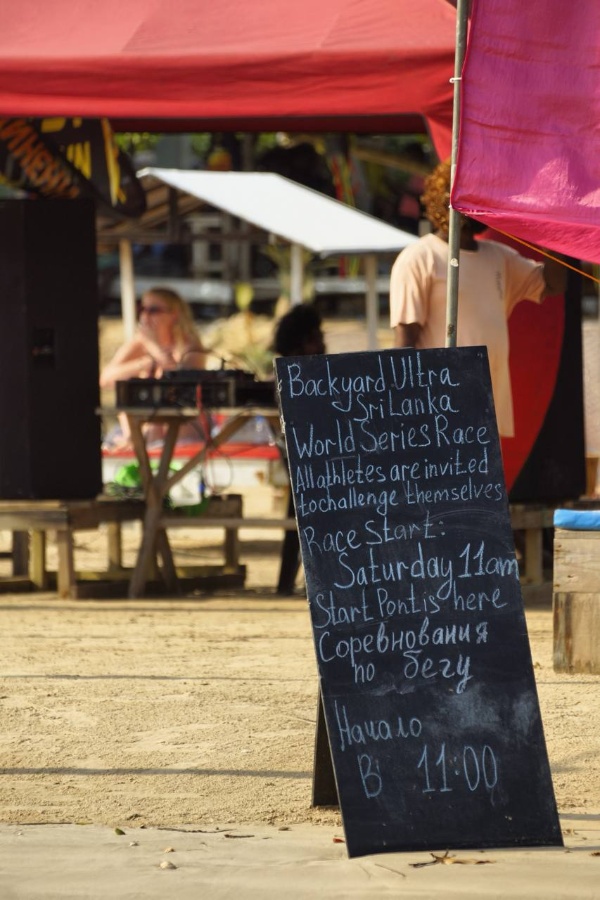 Backyard Ultra
Sri Lanka
World Series Race
All athletes are invited
to challenge themselves
Race Start:
Saturday 11am
Start Pont is here
Соревнования
по бегу
Начало
В 11:00